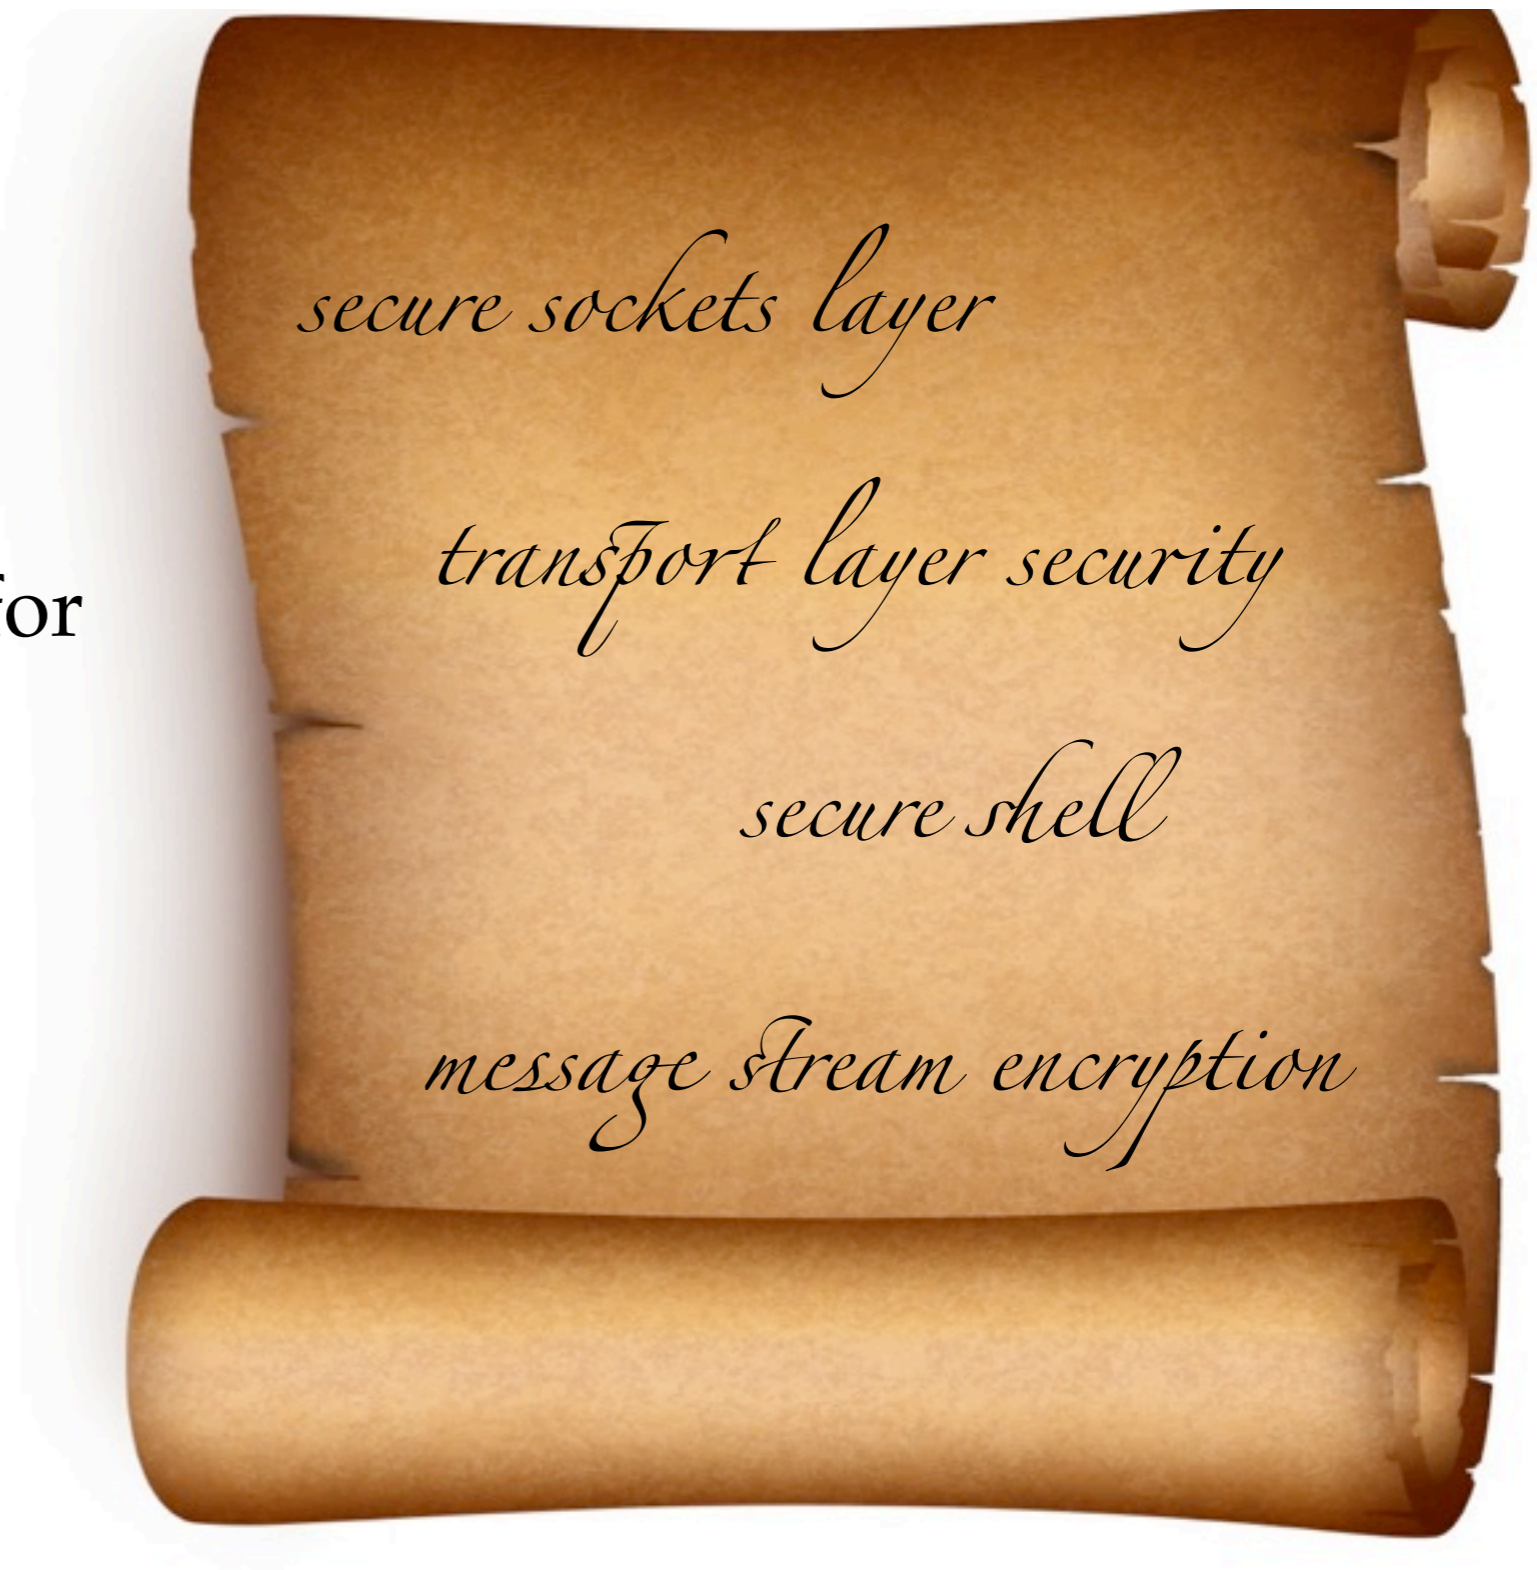 secure sockets layer
transport layer security
for
secure shell
message stream encryption